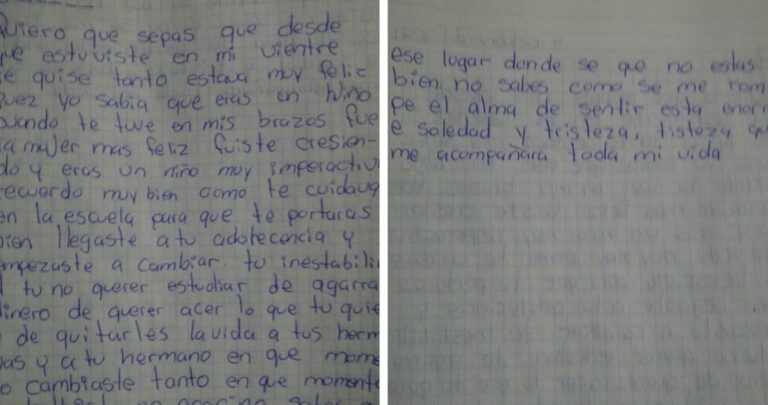 Quiero que sepas que desde
que estuviste en mi vientre
te quise tanto estava muy feliz
yo sabia que eras un niño
cuando te tuve en mis brazos fue
la mujer mas feliz fuiste cresien-
do y eras un niño muy imperactivo
recuerdo muy bien como te cuidava
en la escuela para que te portaras
bien llegaste a tu adolecencia y
empezaste a cambiar tu inestabili
tu no querer estudiar de agarra
dinero de querer acer lo que tu quie
de quitarles la vida a tus herm
nas y a tu hermano en que mome
to cambiaste tanto en que momento
ese lugar donde se que no estas
bien no sabes como se me rom
pe el alma de sentir esta enor
e soledad y tristeza, tisteza
me acompañara toda mi vida